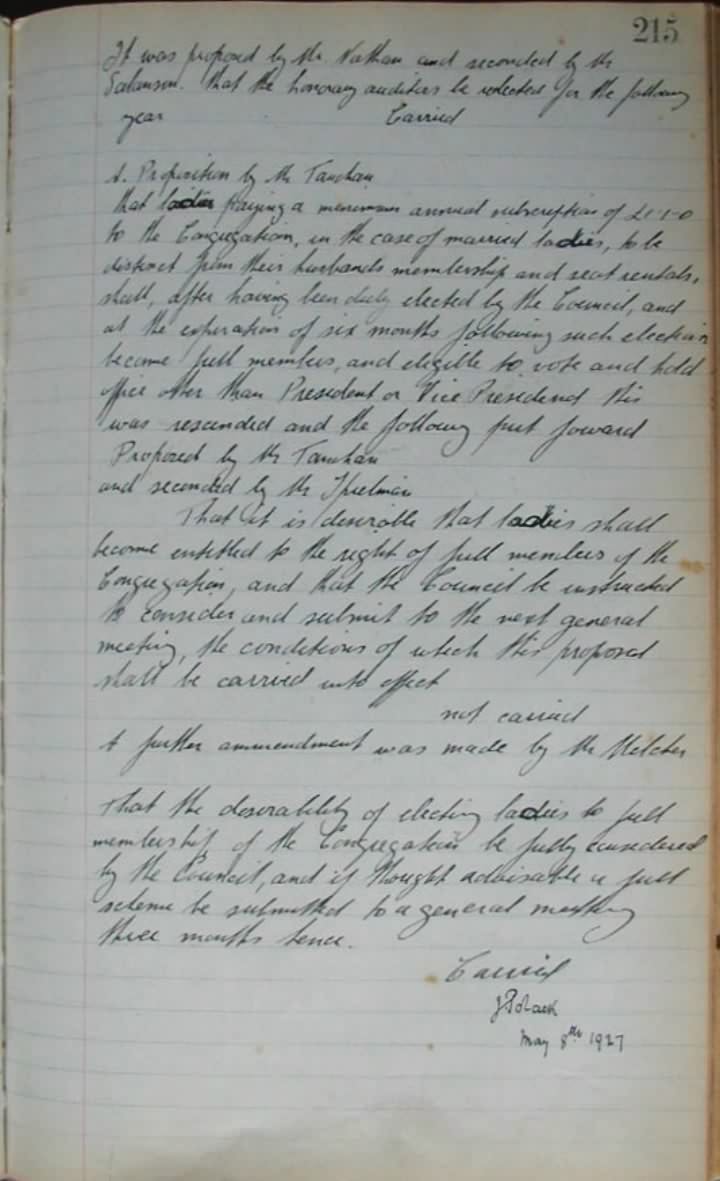 215
It was proposed by Mr Nathan and seconded by Mr
Salanson. that the honorary auditors be relected for the following
year Carried
A. Proposition by Mr Tanchan
that ladies paying a minimum annual subscription of £1-1-0
to the Congregation, in the case of married ladies, to be
distinct from their husbands membership and seat rentals,
shall, after having been duly elected by the Council, and
at the expiration of six months following such election
become full members, and eligible to vote and hold
office other than President or Vice President this
was rescended and the following put forward
Proposed by Mr Tanchan
and seconded by Mr Spielman
That it is desirable that ladies shall
become entitled to the right of full members of the
Congregation, and that the Council be instructed
to consider and submit to the next general
meeting, the conditions of which this proposal
shall be carried into effect
not carried
A further ammendment was made by Mr Melcher
That the desirability of electing ladies to full
membership of the Congregation be fully considered
by the Council, and if thought advisable a full
scheme be submitted to a general meeting
three months hence.
Carried
J Polack
May 8th 1927